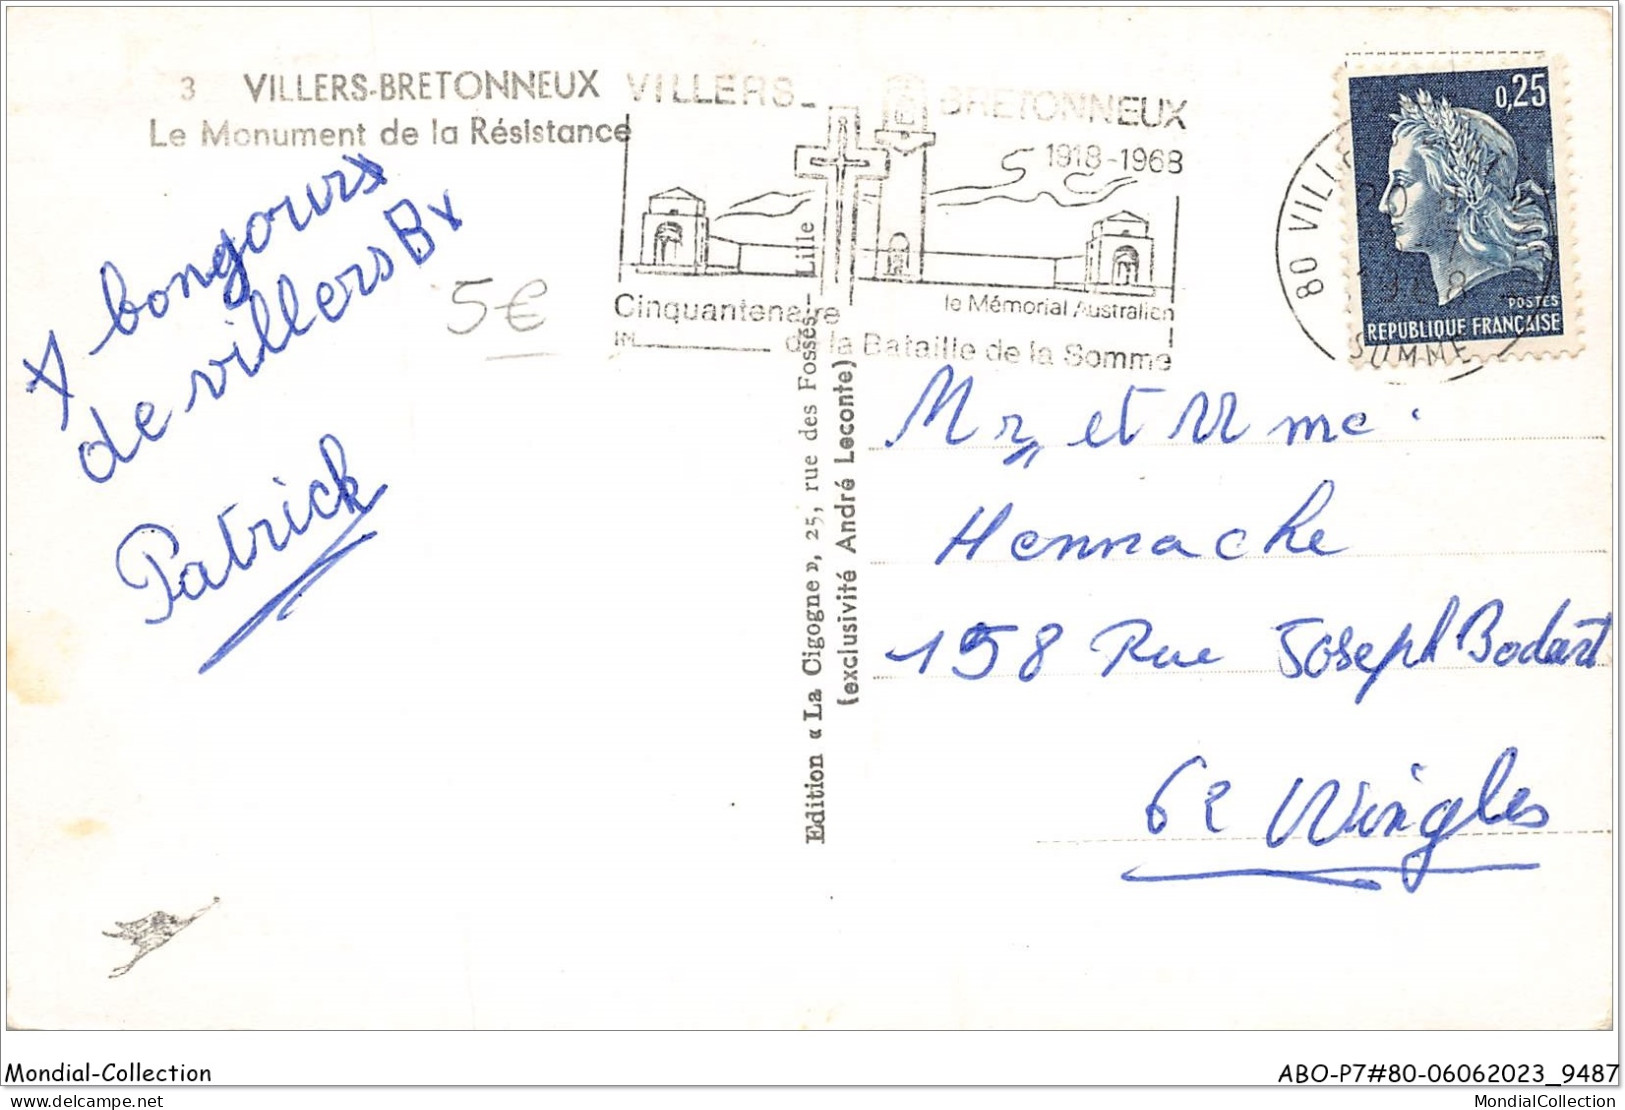 3 VILLERS-BRETONNEUX
Le Monument de la Résistance
x bongours x
de villers B x
Patrick
5€
VILLERS-BRETONNEUX
1918-1968
Cinquantenaire
le Mémorial Australien
de la Bataille de la Somme
80 VILL
20
1968
SOMME
0,25
POSTES
REPUBLIQUE FRANÇAISE
Edition « La Cigogne », 25, rue des Fossés, Lille
(exclusivité André Leconte)
Mr et Mme
Hennache
158 Rue Joseph Bodart
62 Wingles
Mondial-Collection
ABO-P7#80-06062023_9487
delcampe.net
MondialCollection